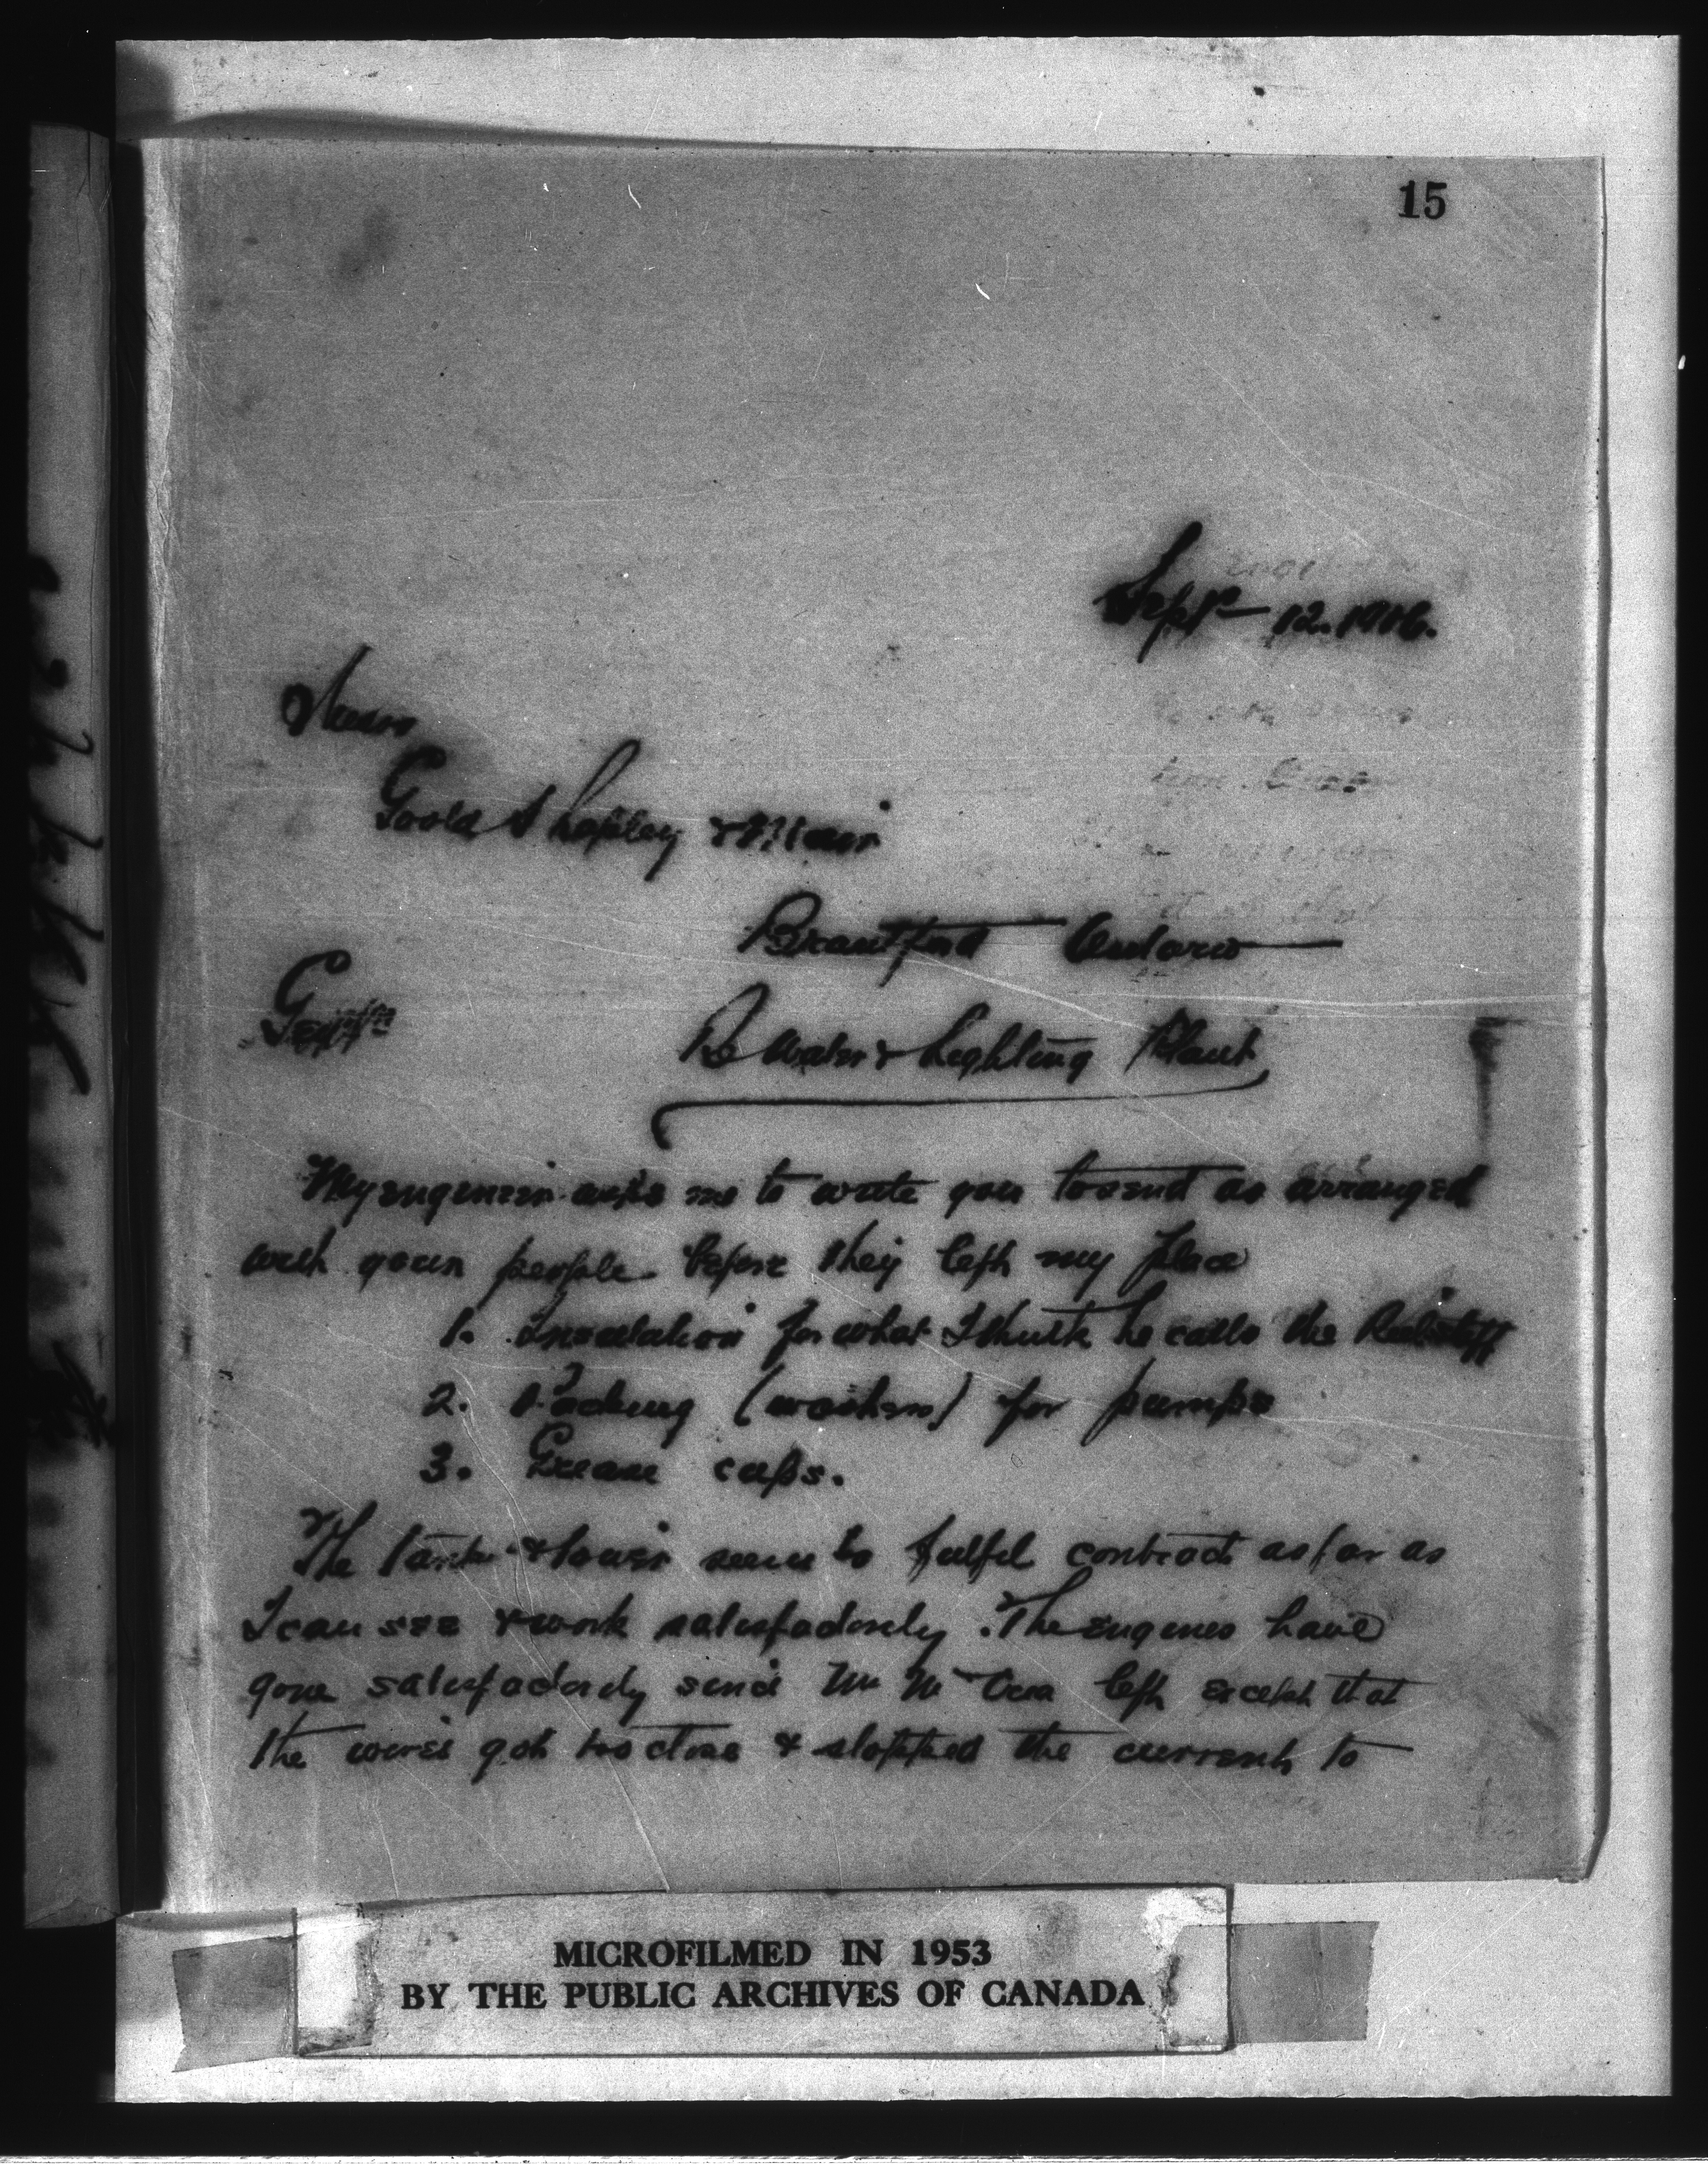 15
Sept 12. 1916.
Messrs
Goold Shapley & Muir
Brantford Ontario
Gentn
Re Water & Lighting Plant
My engineer asks me to write you to send as arranged
with your people before they left my place
1. Insulation for what I think he calls the
2. Packing (washers) for pumps
3. Grease cups.
The tank & tower seem to fulfil contract as far as
I can see & work satisfactorily. The engines have
gone satisfactorily since Mr Mc left except that
the wires got too close & stopped the current to
MICROFILMED IN 1953
BY THE PUBLIC ARCHIVES OF CANADA